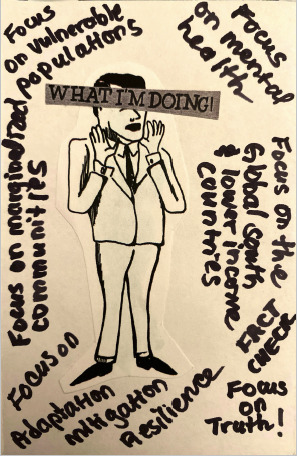 Focus
on vulnerable
populations
Focus
on mental
health
WHAT I'M DOING!
Focus on marginalized
communities
Focus on the
Global South
& lower income
Countries
FACT
CHECK
Focus
on
Truth!
Focus on
Adaptation
Mitigation
Resilience